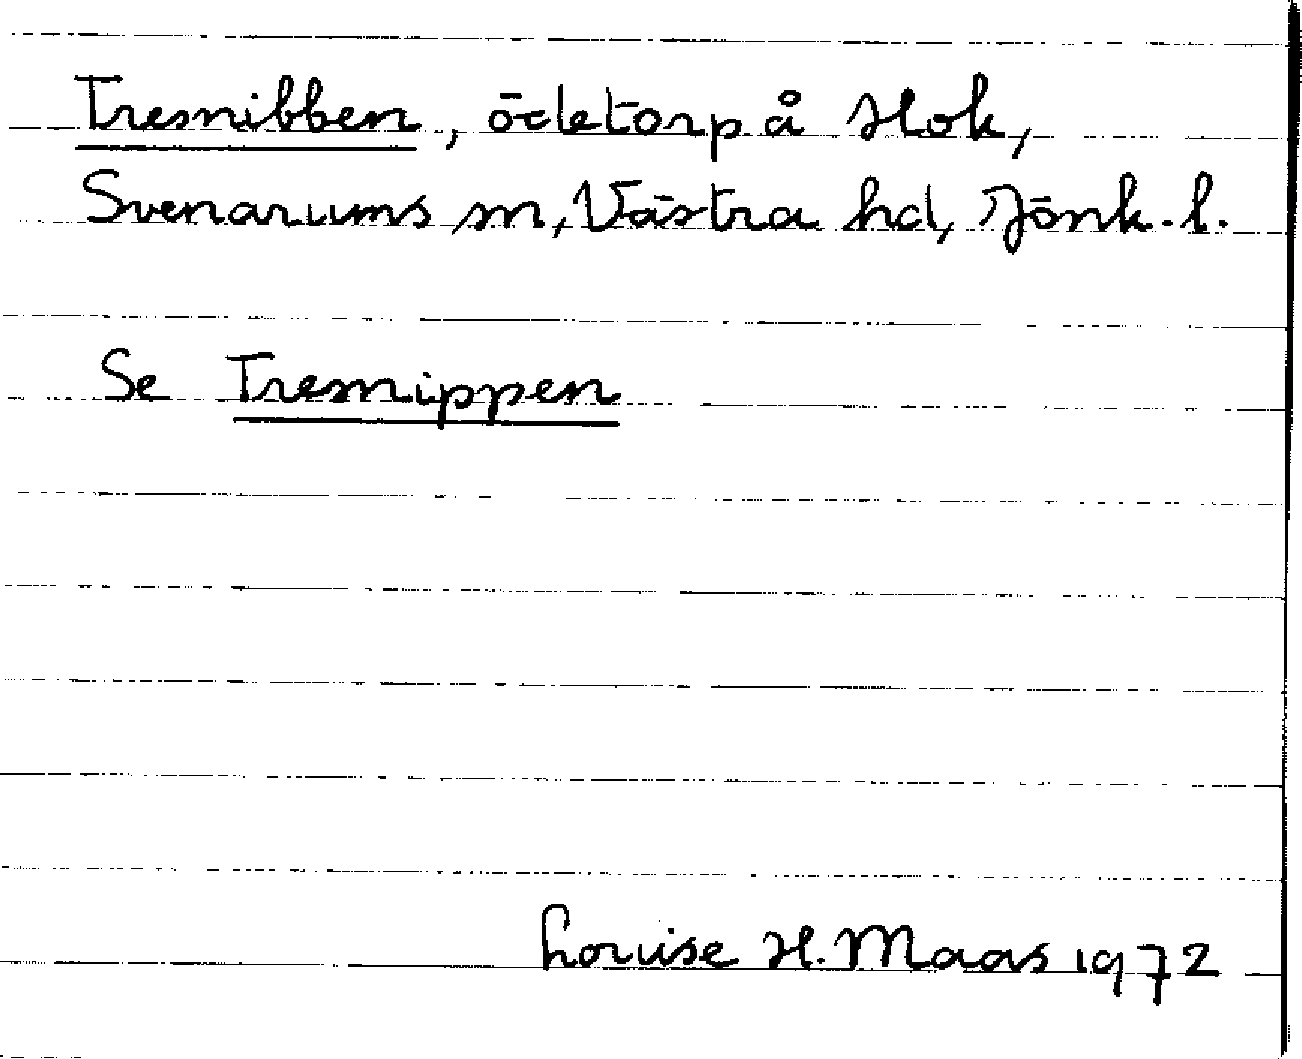 Tresnibben, ödetorp å Hok,
Svenarums sn, Västra hd, Jönk. l.
Se Tresnippen
Louise H. Maas 1972